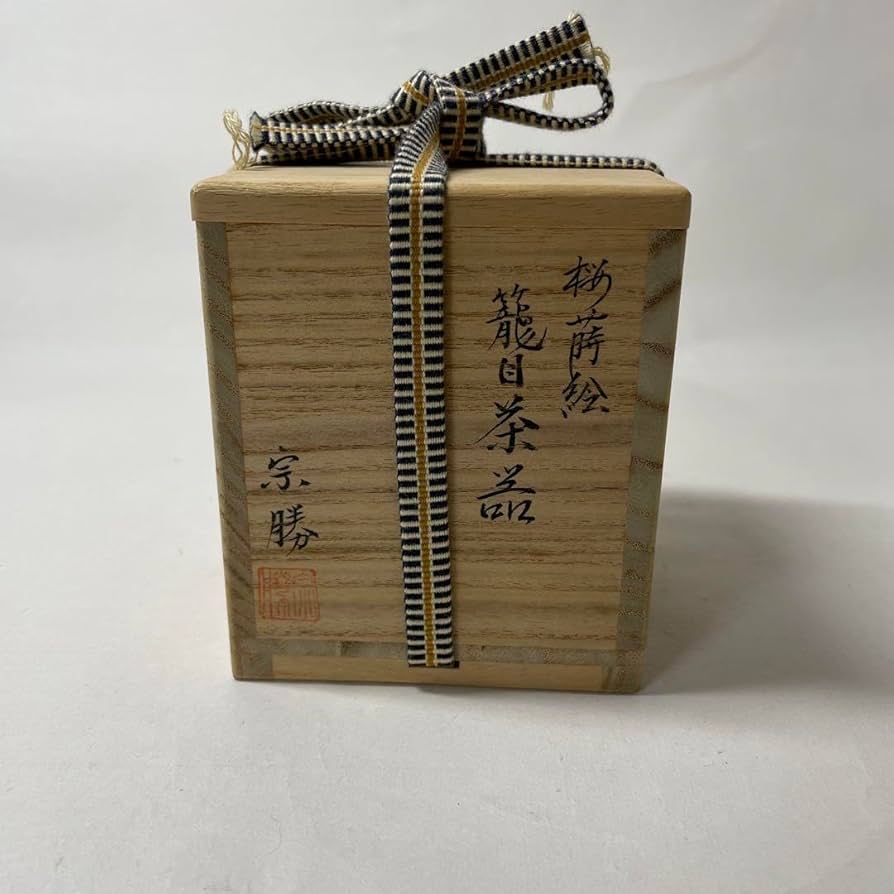 桜蒔絵
籠目茶器
宗勝